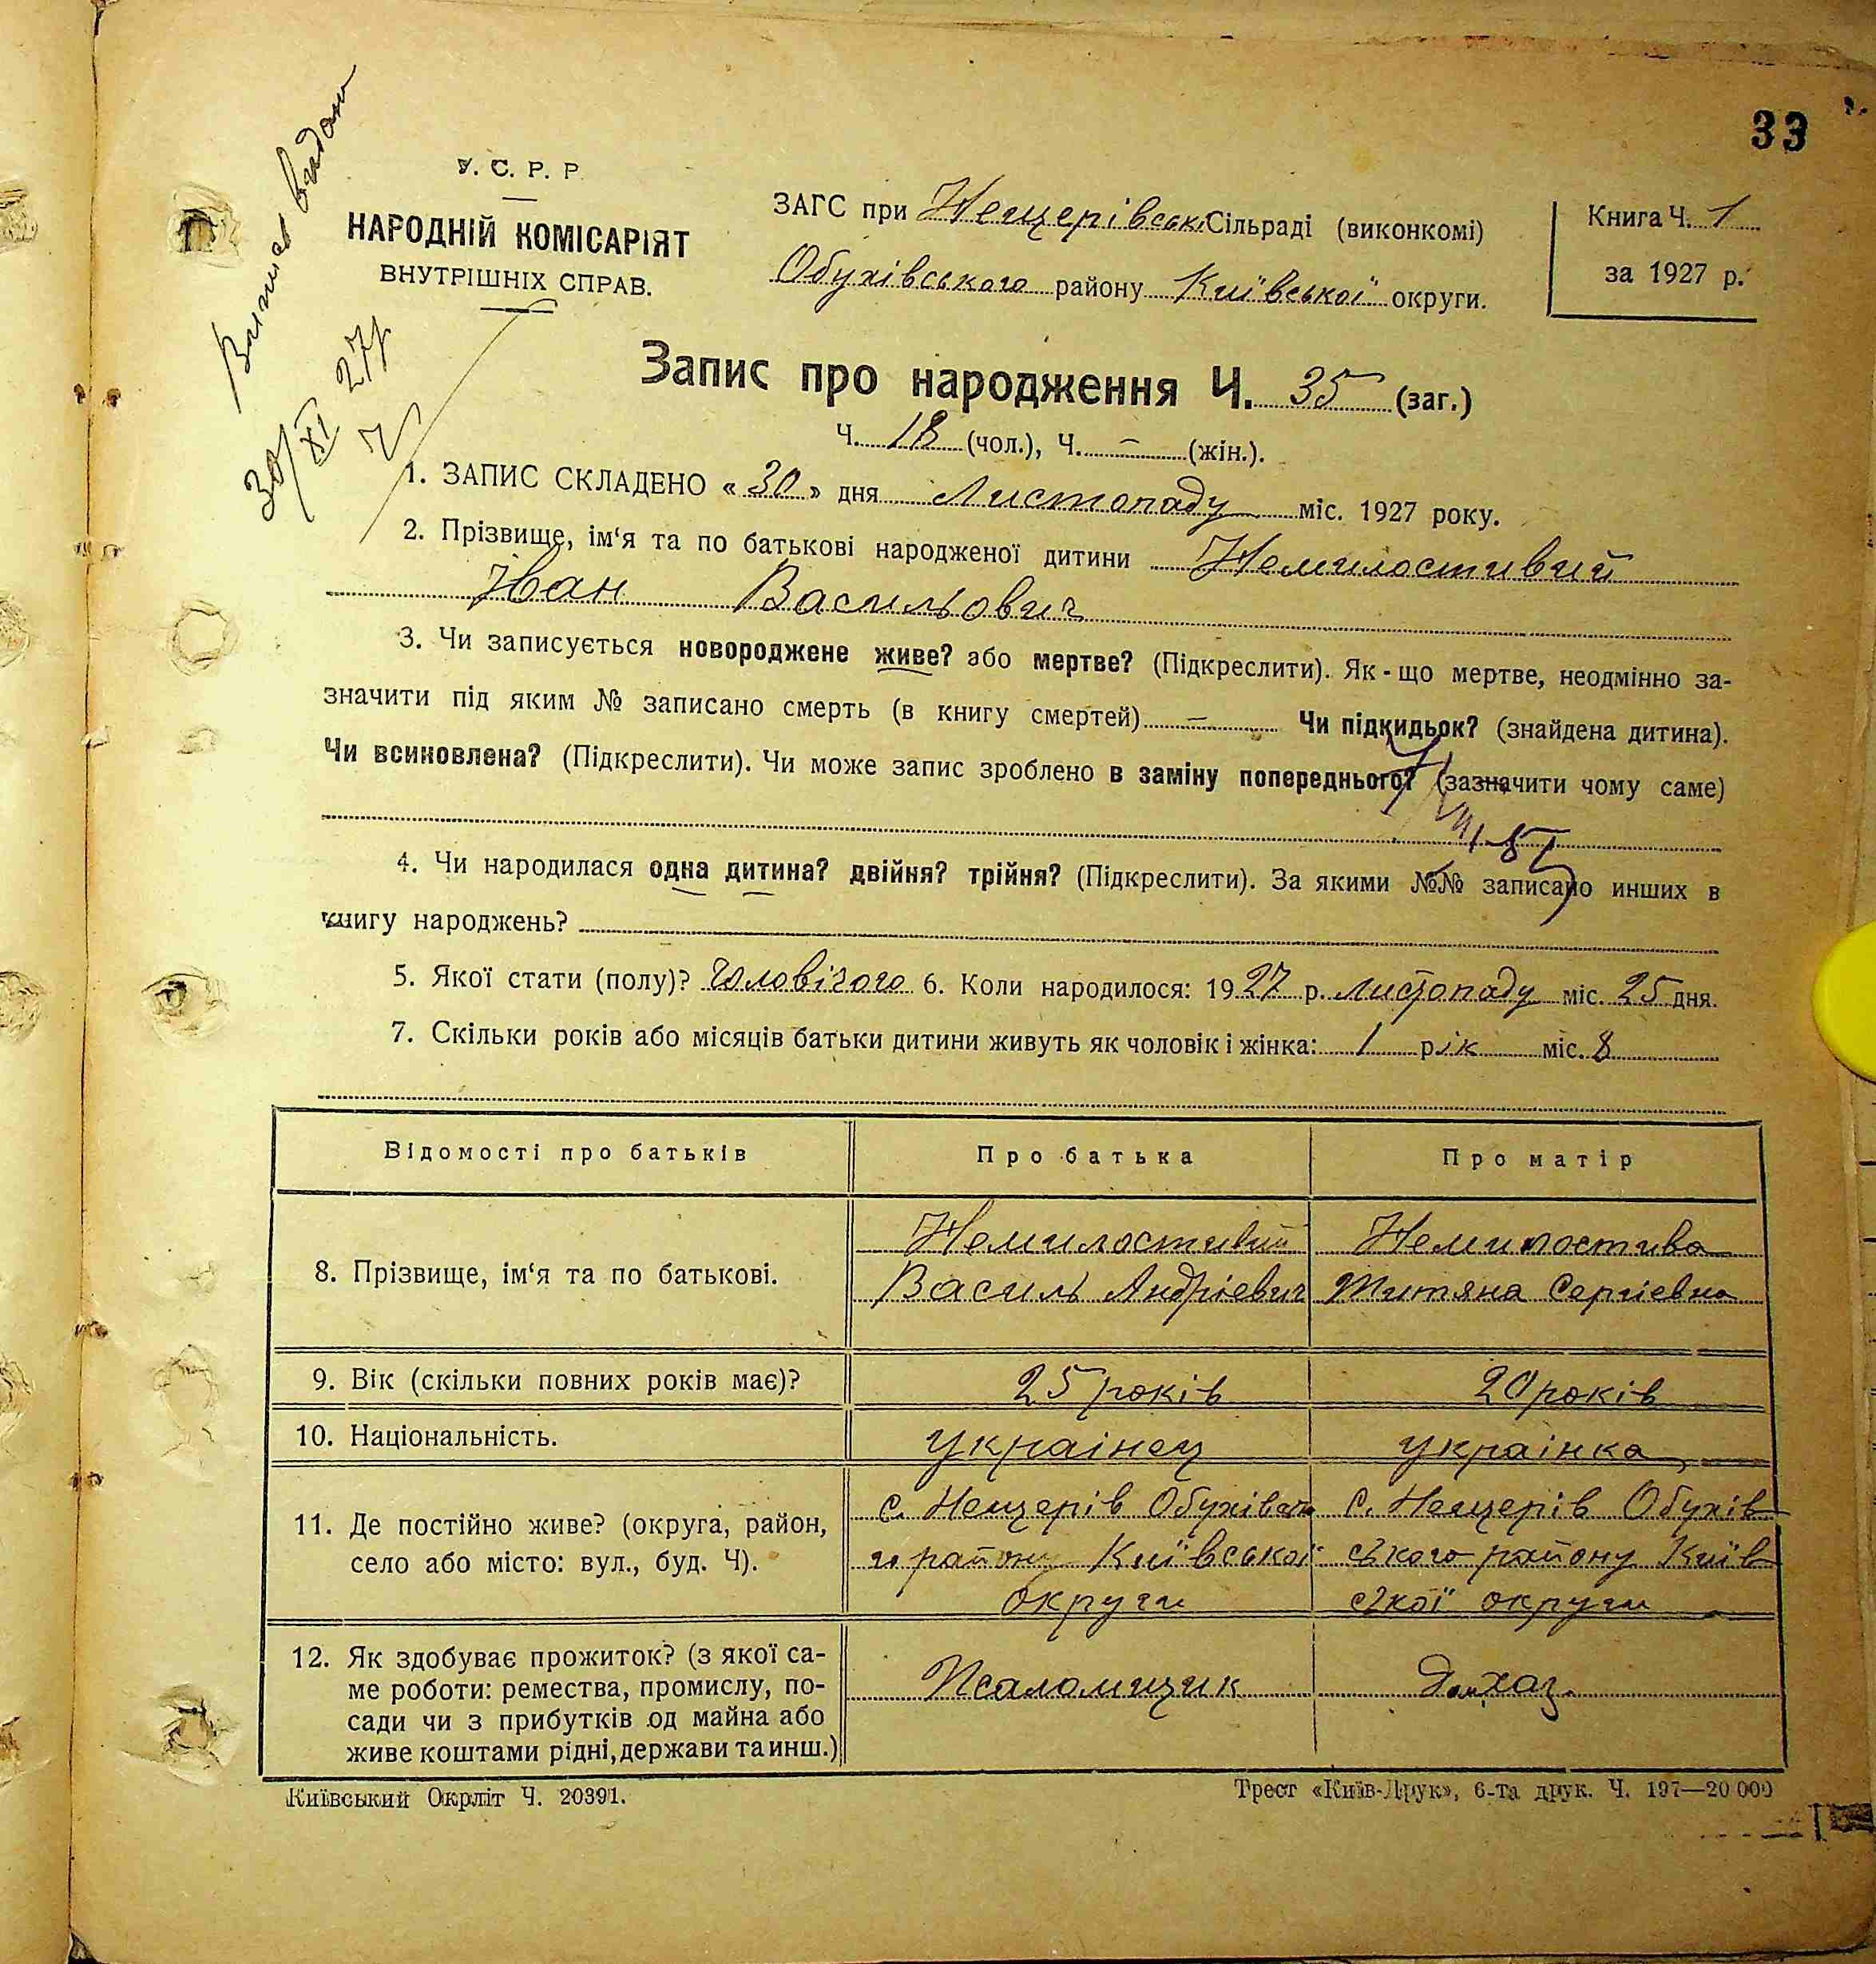 33
Випись видано
30/XI 27 р
У. С. Р. Р.
НАРОДНІЙ КОМІСАРІЯТ
ВНУТРІШНІХ СПРАВ.
ЗАГС при Нещерівські Сільраді (виконкомі)
Обухівського району Київської округи.
Книга Ч. 1
за 1927 р.
Запис про народження Ч. 35 (заг.)
Ч. 18 (чол.), Ч. – (жін.).
1. ЗАПИС СКЛАДЕНО «30» дня Листопаду міс. 1927 року.
2. Прізвище, ім‘я та по батькові народженої дитини Немилостивий
Іван Васильович
3. Чи записується новороджене живе? або мертве? (Підкреслити). Як-що мертве, неодмінно за-
значити під яким № записано смерть (в книгу смертей) – Чи підкидьок? (знайдена дитина).
Чи всиновлена? (Підкреслити). Чи може запис зроблено в заміну попереднього? (зазначити чому саме)
4. Чи народилася одна дитина? двійня? трійня? (Підкреслити). За якими №№ записано инших в
книгу народжень?
5. Якої стати (полу)? Чоловічого 6. Коли народилося: 1927 р. Листопаду міс. 25 дня.
7. Скільки років або місяців батьки дитини живуть як чоловік і жінка: 1 рік міс. 8
Відомості про батьків Про батька Про матір
8. Прізвище, ім‘я та по батькові.
Немилостивий
Василь Андрієвич
Немилостива
Титяна Сергієвна
9. Вік (скільки повних років має)? 25 років 20 років
10. Національність. українец українка
11. Де постійно живе? (округа, район,
село або місто: вул., буд. Ч).
с. Нещерів Обухівсько
го району Київської
округи
С. Нещерів Обухів
ського району Київ
ської округи
12. Як здобуває прожиток? (з якої са-
ме роботи: ремества, промислу, по-
сади чи з прибутків од майна або
живе коштами рідні, держави та инш.)
Псаломщик
Дом.хаз.
Київський Окрліт Ч. 20391.
Трест «Київ-Друк», 6-та друк. Ч. 197—20 000